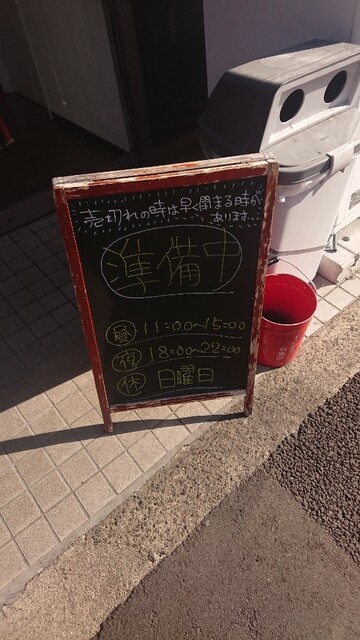 売切れの時は早く閉まる時が
あります…
準備中
昼 11:00~15:00
夜 18:00~22:00
休 日曜日